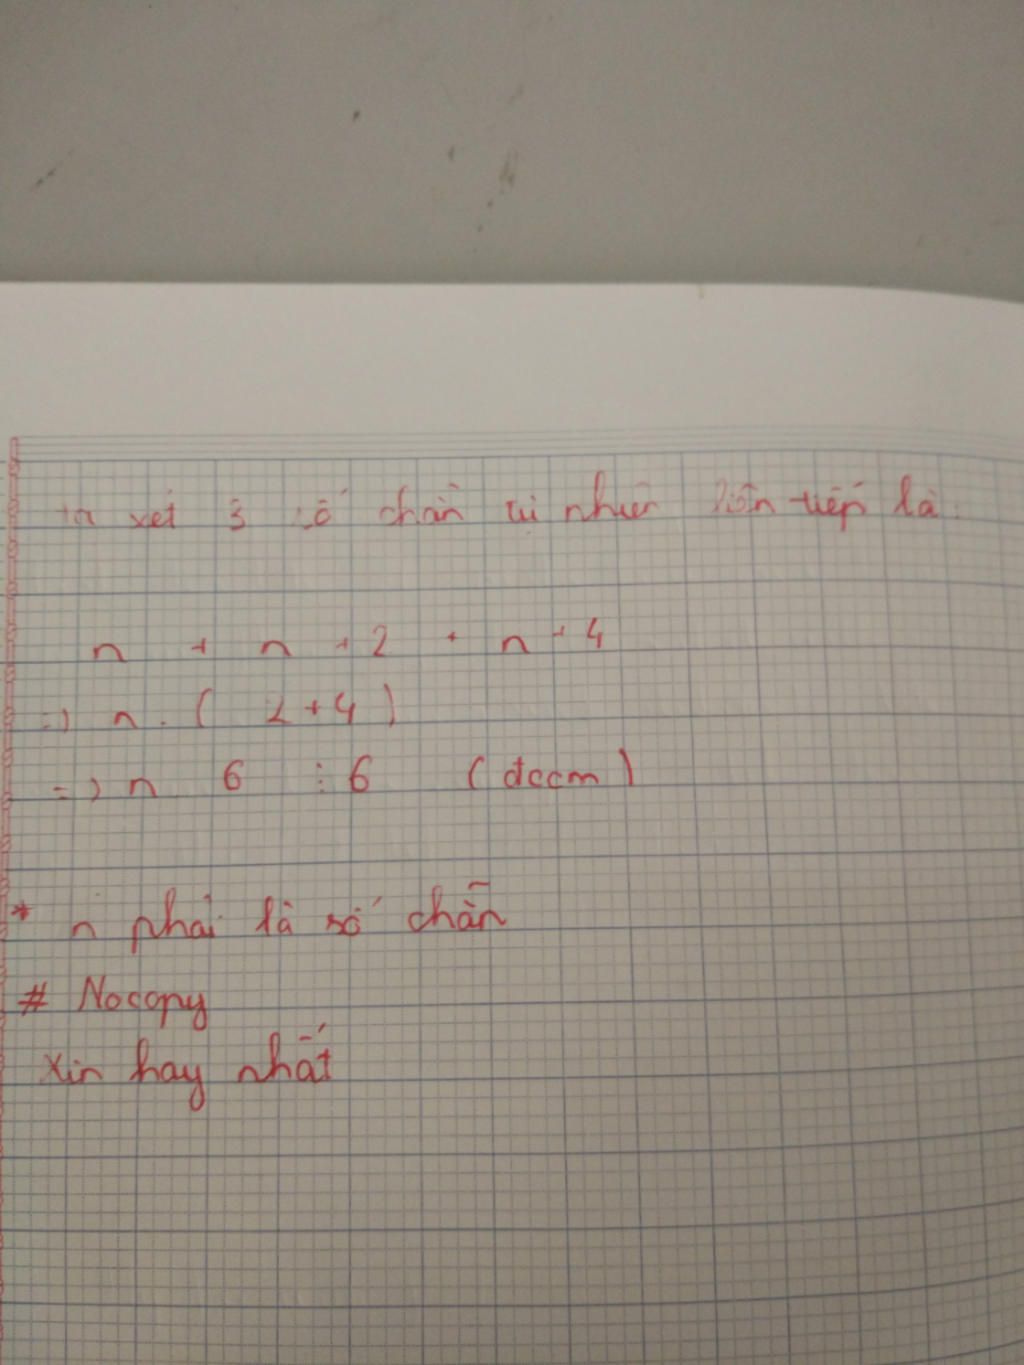 ta xét 3 số chẵn tự nhiên liên tiếp là:
n + n + 2 + n + 4
=> n . ( 2 + 4 )
=> n 6 ⋮ 6 (đccm)
* n phải là số chẵn
# Nocopy
xin hay nhất